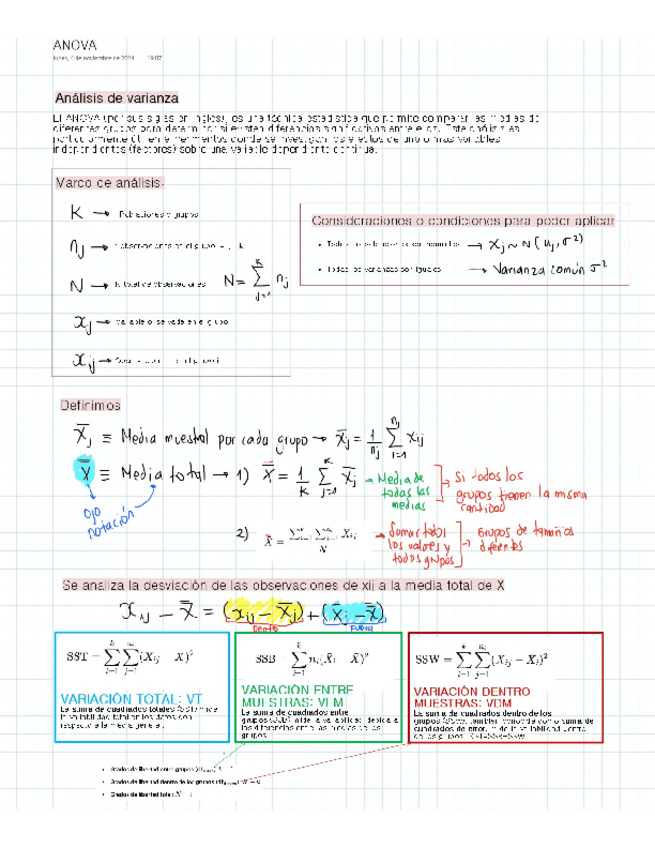 ANOVA
lunes, 4 de noviembre de 2024 19:07
Análisis de varianza
El ANOVA (por sus siglas en inglés), es una técnica estadística que permite comparar las medias de
diferentes grupos para determinar si existen diferencias significativas entre ellos. Este análisis es
particularmente útil en experimentos donde se investigan los efectos de una o más variables
independientes (factores) sobre una variable dependiente continua.
Marco de análisis:
K → Poblaciones y grupos
nj → observaciones en el grupo
N → N total de observaciones N = Σ nj
xj → variable observada en el grupo
xij →
Consideraciones o condiciones para poder aplicar
→ Xj ~ N(μj, σ²)
Todas las varianzas son iguales → Varianza común σ²
Definimos
X̄j ≡ Media muestral por cada grupo → X̄j = 1/nj Σ xij
X̿ ≡ Media total → 1) X̿ = 1/K Σ X̄j → Media de todas las medias → Si todos los grupos tienen la misma cantidad
ojo notación
2) → Sumar todos los valores y todos grupos → Grupos de tamaños diferentes
Se analiza la desviación de las observaciones de xij a la media total de X
xij − X̿ = (xij − X̄j) + (X̄j − X̿)
Dentro Fuera
SST = ΣΣ(Xij − X̄)²
VARIACIÓN TOTAL: VT
La suma de cuadrados totales (SST) mide
la variabilidad total en los datos con
respecto a la media general.
SSB = Σ ni(X̄i − X̄)²
VARIACIÓN ENTRE
MUESTRAS: VEM
La suma de cuadrados entre
grupos (SSB) mide la variabilidad debida a
las diferencias entre las medias de los
grupos.
SSW = ΣΣ(Xij − X̄i)²
VARIACIÓN DENTRO
MUESTRAS: VDM
La suma de cuadrados dentro de los
grupos (SSW), también conocida como suma de
cuadrados de error, mide la variabilidad dentro
de los grupos. SST=SSB+SSW
Grados de libertad entre grupos
Grados de libertad dentro de los grupos
Grados de libertad total: